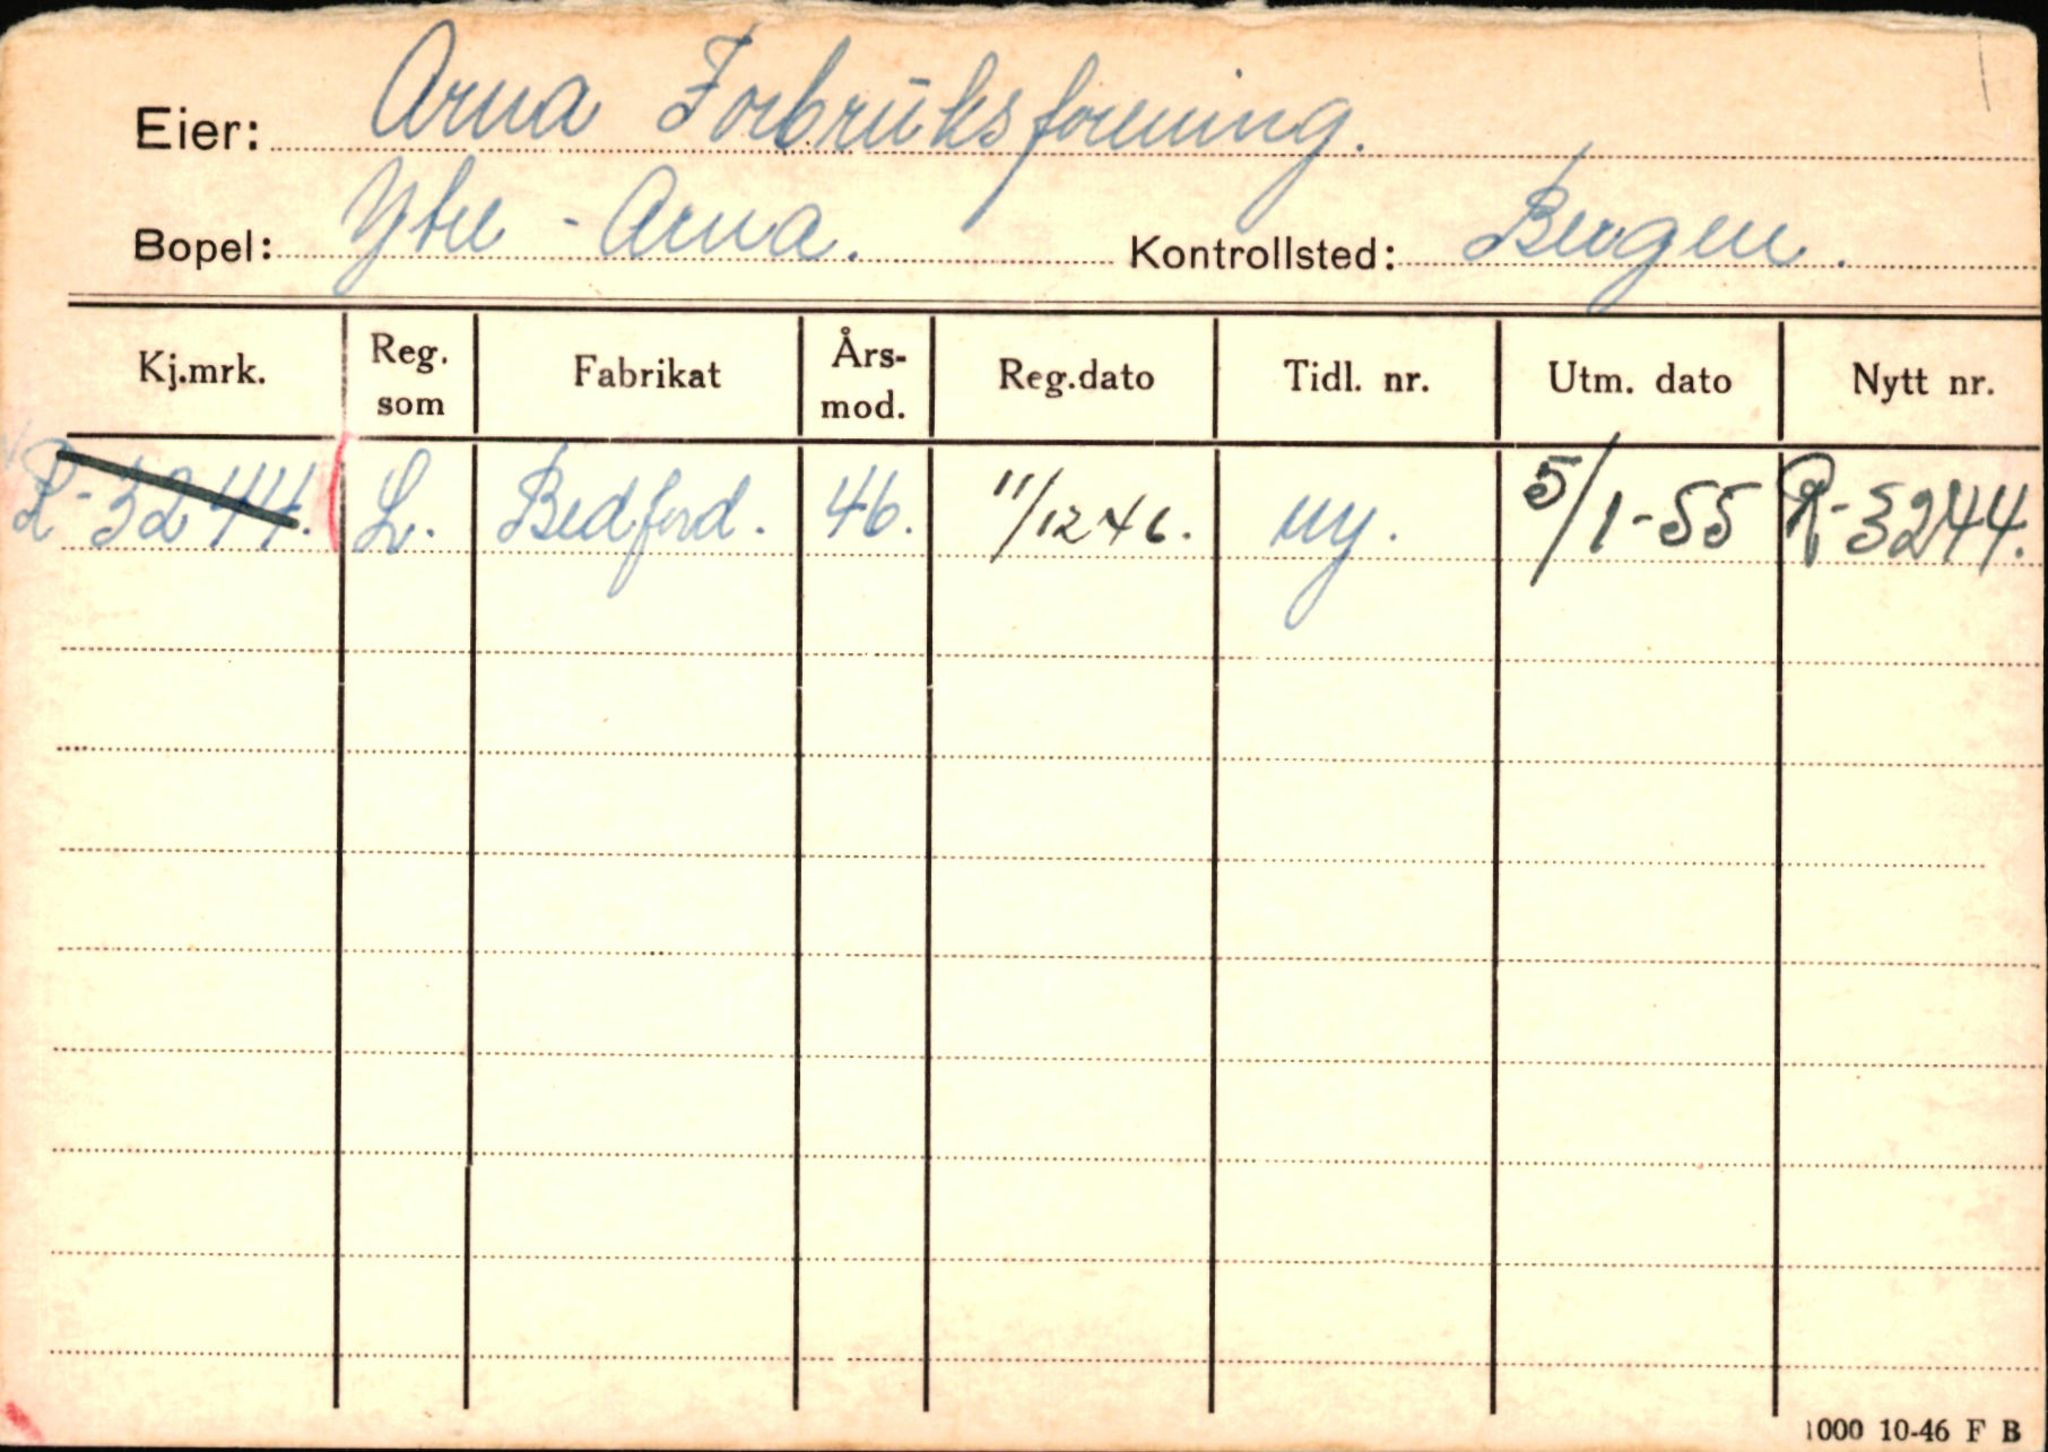 Eier: Arna Forbrüksforening.
Bopel: Ytre - Arna. Kontrollsted: Bergen.
Kj.mrk. Reg. som Fabrikat Års-mod. Reg.dato Tidl. nr. Utm. dato Nytt nr.
R-3244. L. Bedford. 46. 11/12 46. ny. 5/1-55 R-3244.
1000 10-46 F B